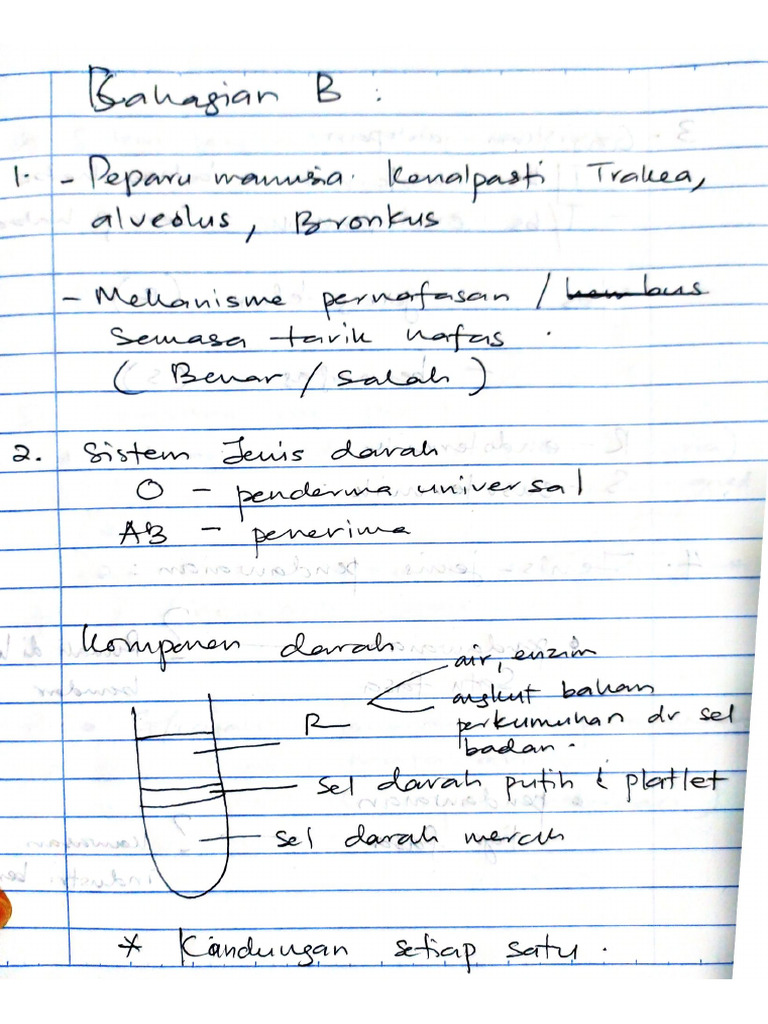 Bahagian B :
1. - Peparu manusia. Kenalpasti Trakea,
alveolus, Bronkus
- Mekanisme pernafasan /
semasa tarik nafas.
(Benar / Salah)
2. Sistem Jenis darah
O - penderma universal
AB - penerima
Komponen darah
air, enzim
R
angkut bahan
perkumuhan dr sel
badan.
sel darah putih & platlet
sel darah merah
* Kandungan setiap satu.